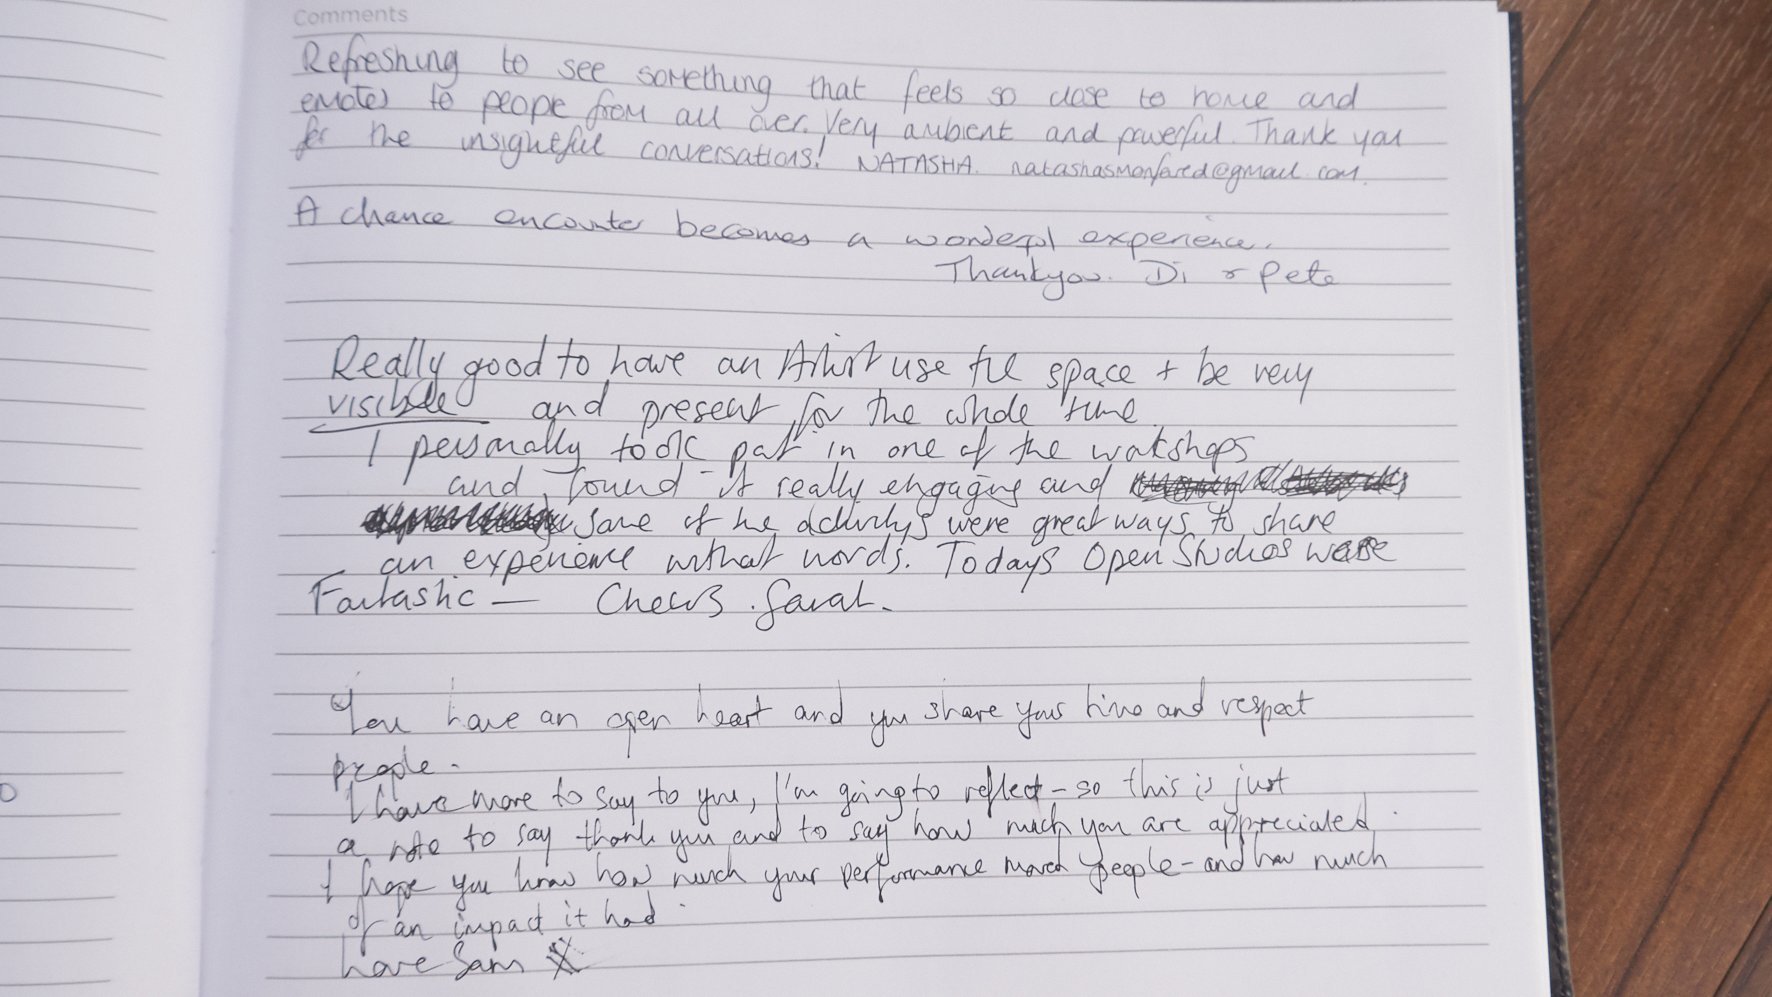 Comments
Refreshing to see something that feels so close to home and
emotes to people from all over. Very ambient and powerful. Thank you
for the insightful conversations! NATASHA. natashasmonfared@gmail.com.
A chance encounter becomes a wonderful experience.
Thankyou. Di & Pete
Really good to have an Artist use the space + be very
visible and present for the whole time.
I personally took part in one of the workshops
and found it really engaging and
Some of the activitys were great ways to share
an experience without words. Todays Open Studios were
Fantastic — Cheers. Sarah.
You have an open heart and you share your time and respect
people.
I have more to say to you, I'm going to reflect - so this is just
a note to say thank you and to say how much you are appreciated.
I hope you know how much your performance moved people - and how much
of an impact it had.
Love Sam X